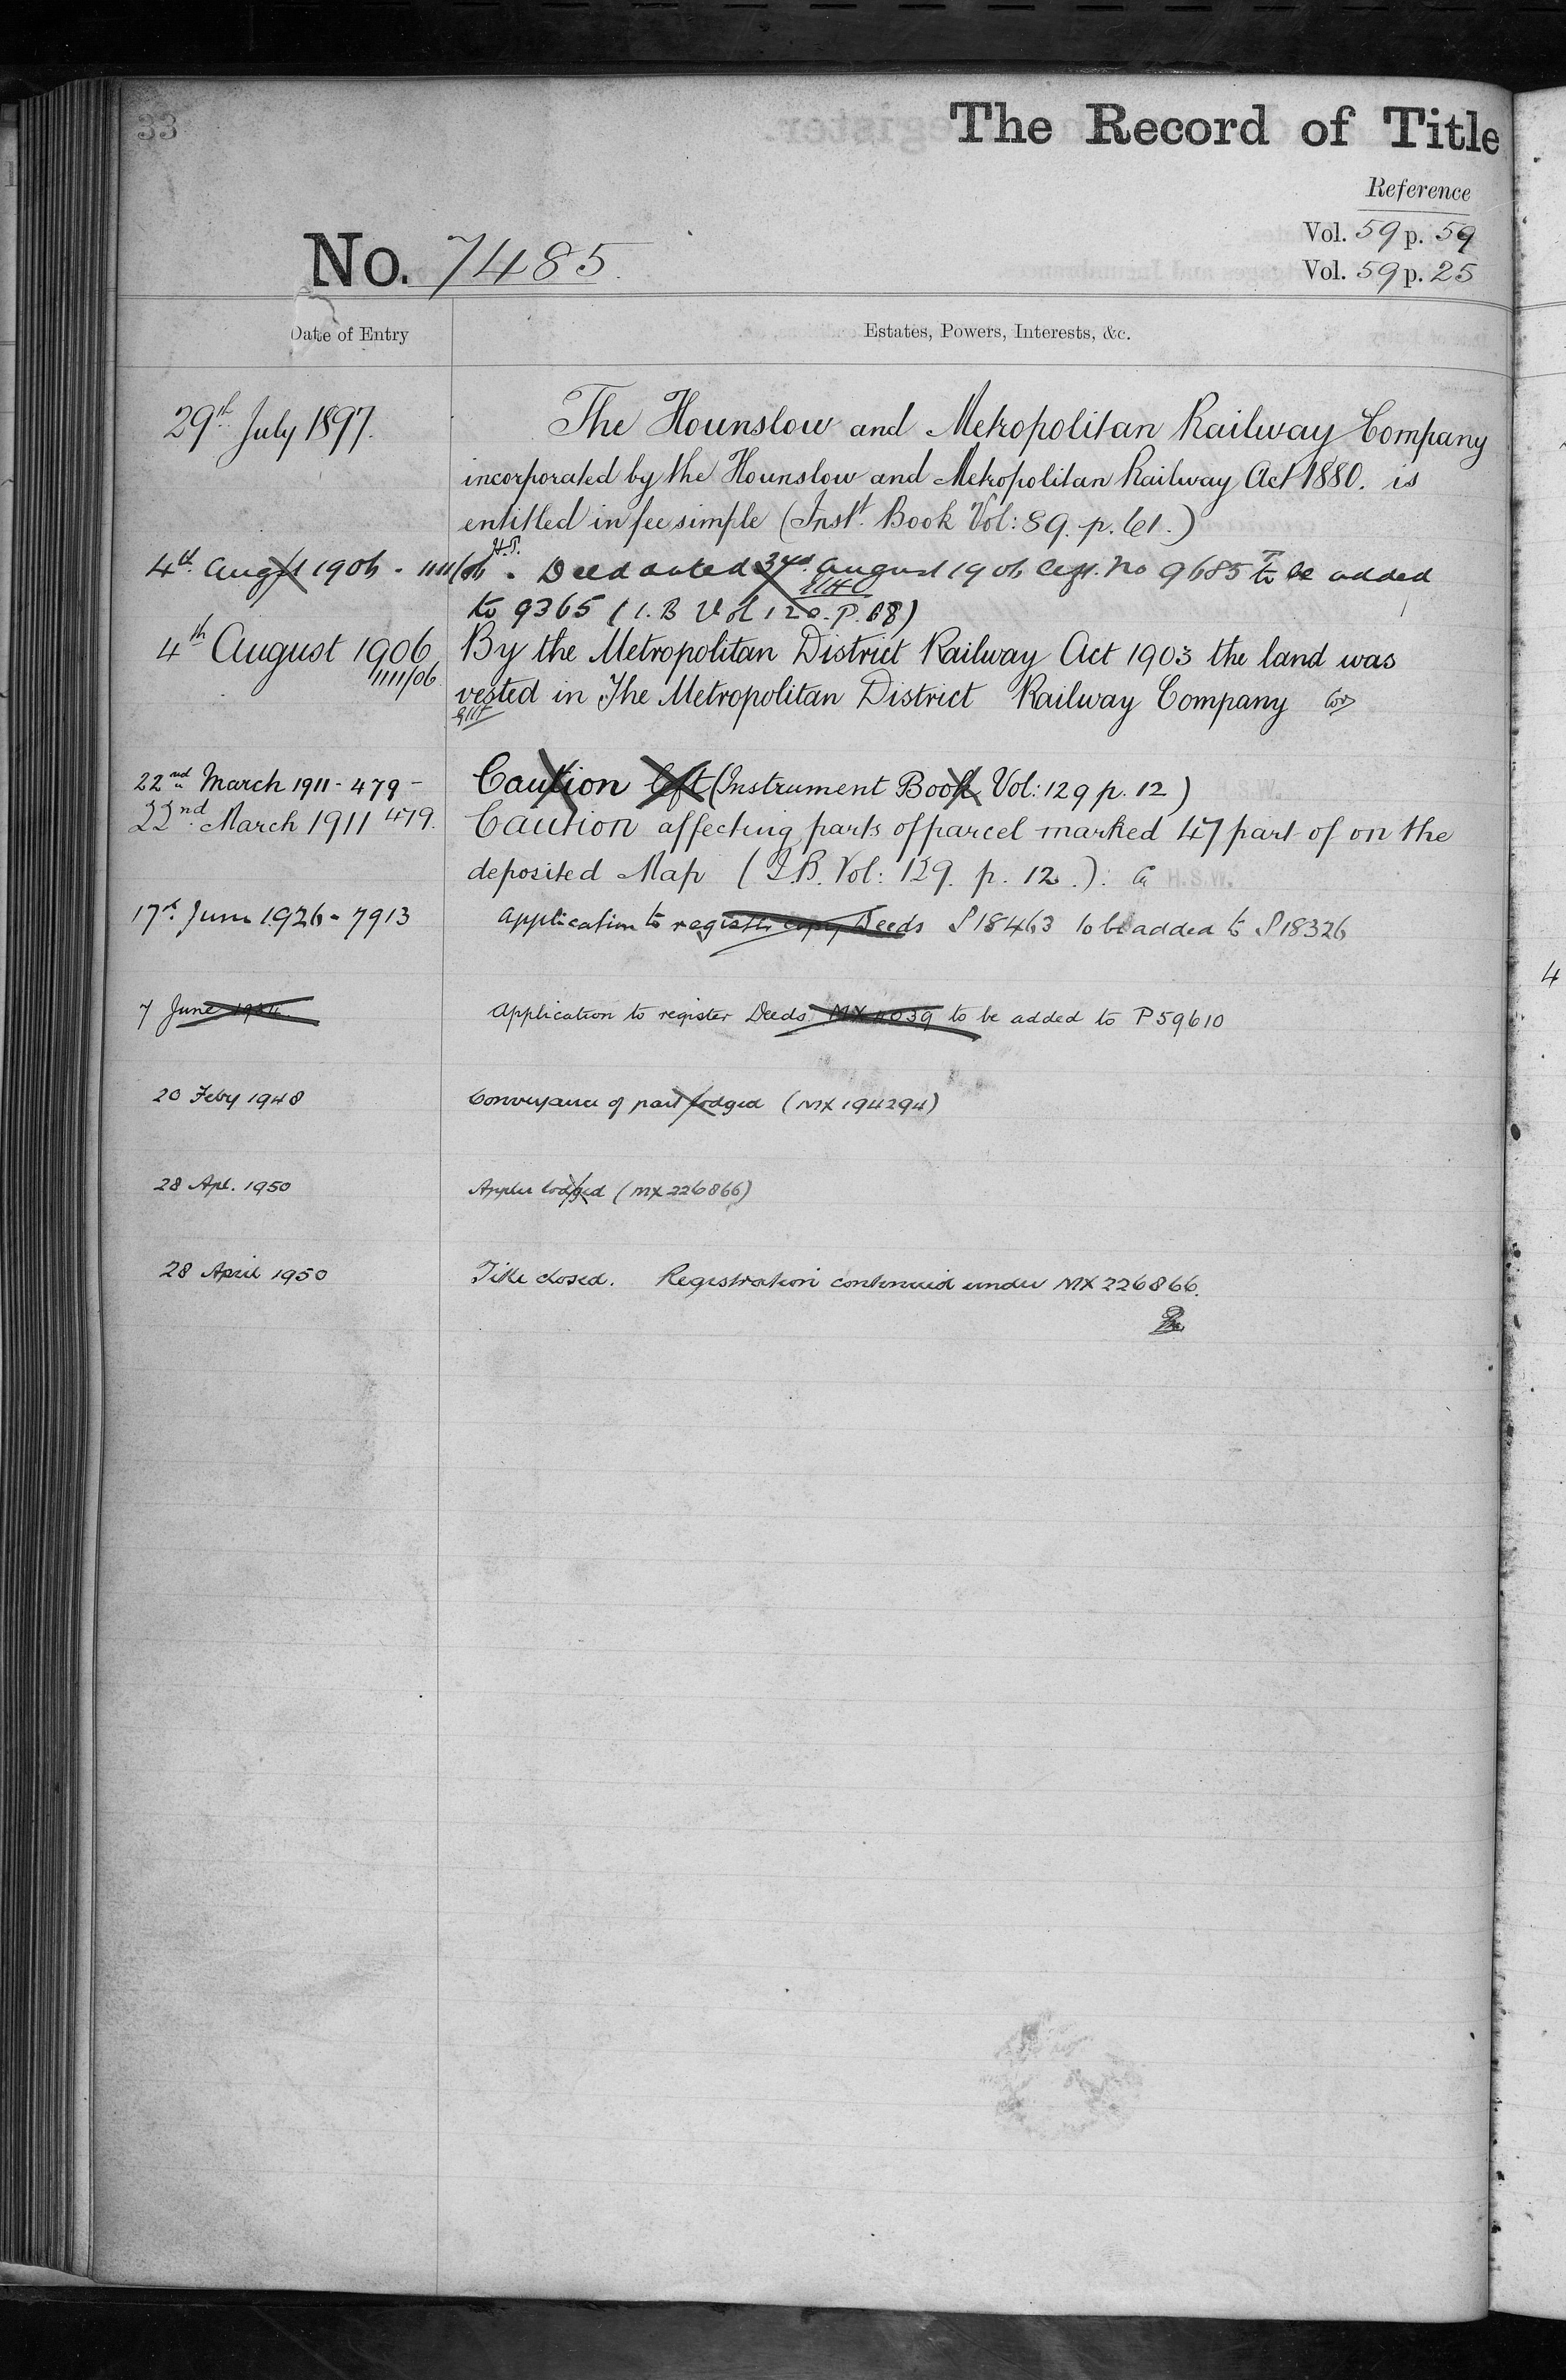 33
The Record of Title
Reference
Vol. 59 p. 59
No. 7485.
Vol. 59 p. 25
Date of Entry
Estates, Powers, Interests, &c.
29th July 1897.
The Hounslow and Metropolitan Railway Company
incorporated by the Hounslow and Metropolitan Railway Act 1880. is
entitled in fee simple (Inst. Book Vol: 89. p. 61.)
4th Augst 1906 - 1111/06. Deed dated 3rd August 1906 No 9685 To be added
to 9365 (I.B Vol 120. P. 68)
4th August 1906 By the Metropolitan District Railway Act 1903 the land was
1111/06. vested in The Metropolitan District Railway Company
22nd March 1911 - 479 - Caution left (Instrument Book Vol: 129 p. 12)
22nd March 1911 479. Caution affecting parts of parcel marked 47 part of on the
deposited Map (I.B. Vol: 129. p. 12.). H.S.W.
17th June 1926 - 7913 Application to register copy Deeds P18463 to be added to P18326
7 June Application to register Deeds to be added to P59610
20 Feby 1948 Conveyance of part lodged (MX 194294)
28 Apl. 1950 Appln lodged (MX 226866)
28 April 1950 Title closed. Registration continued under MX 226866.
4